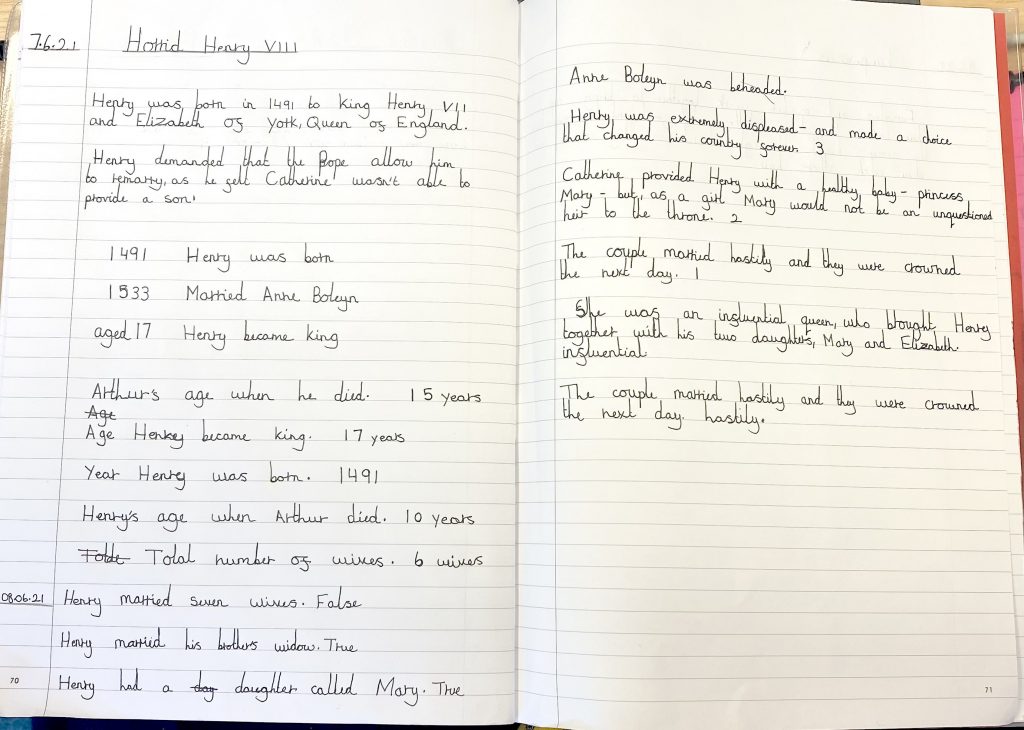 7.6.21 Horrid Henry VIII
Henry was born in 1491 to King Henry VII
and Elizabeth of York, Queen of England.
Henry demanded that the Pope allow him
to remarry, as he felt Catherine wasn't able to
provide a son'
1491 Henry was born
1533 Married Anne Boleyn
aged 17 Henry became king
Arthur's age when he died. 15 years
Age
Age Henrey became king. 17 years
Year Henry was born. 1491
Henry's age when Arthur died. 10 years
Total number of wives. 6 wives
08.06.21 Henry married seven wives. False
Henry married his brothers widow. True
Henry had a day daughter called Mary. True
70
Anne Boleyn was beheaded.
Henry was extremely displeased - and made a choice
that changed his country forever. 3
Catherine provided Henry with a healthy baby - princess
Mary - but, as a girl Mary would not be an unquestioned
heir to the throne. 2
The couple married hastily and they were crowned
the next day. 1
She was an influential queen, who brought Henry
together with his two daughters, Mary and Elizabeth.
influential
The couple married hastily and they were crowned
the next day. hastily.
71